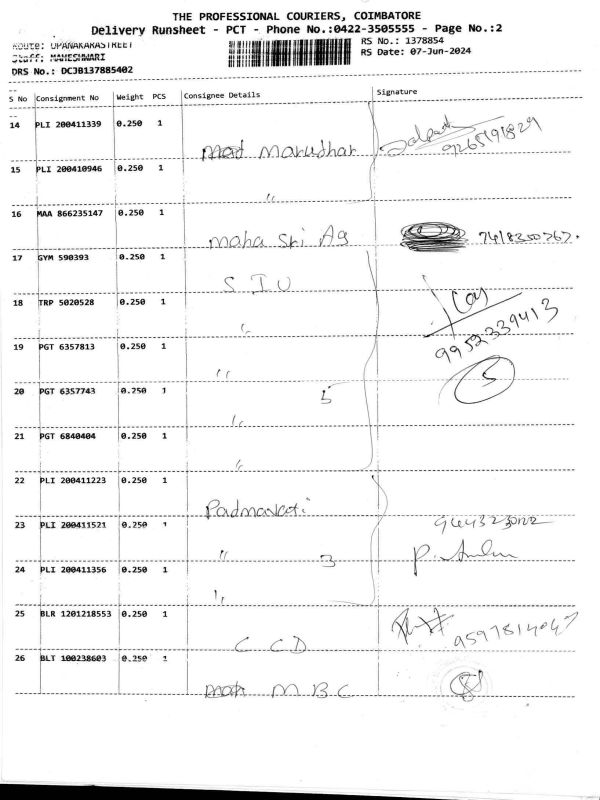 THE PROFESSIONAL COURIERS, COIMBATORE
Delivery Runsheet - PCT - Phone No.:0422-3505555 - Page No.:2
Route: OPANAKARASTREET
RS No.: 1378854
Staff: MAHESHWARI
RS Date: 07-Jun-2024
DRS No.: DCJB137885402
S No Consignment No Weight PCS Consignee Details Signature
14 PLI 200411339 0.250 1
Marudhar
9265191829
15 PLI 200410946 0.250 1
"
16 MAA 866235147 0.250 1
maha Sri Ag
17 GYM 590393 0.250 1
S I U
18 TRP 5020528 0.250 1
"
9952339413
19 PGT 6357813 0.250 1
"
5
20 PGT 6357743 0.250 1
5
"
21 PGT 6840404 0.250 1
"
22 PLI 200411223 0.250 1
Padmavati
23 PLI 200411521 0.250 1
" 3
24 PLI 200411356 0.250 1
"
25 BLR 1201218553 0.250 1
C C D
9597814047
26 BLT 100238603 0.250 1
M B C